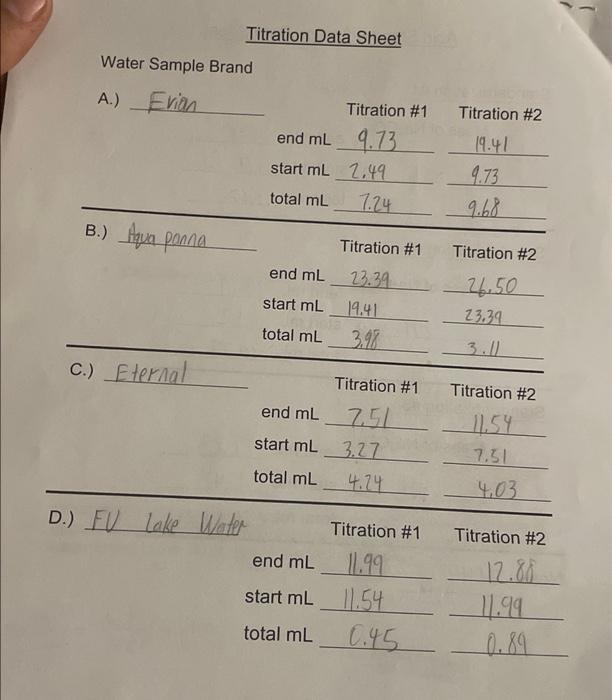 Titration Data Sheet
Water Sample Brand
A.) Evian
Titration #1 Titration #2
end mL 9.73 19.41
start mL 2.49 9.73
total mL 7.24 9.68
B.) Aqua panna
Titration #1 Titration #2
end mL 23.39 26.50
start mL 19.41 23.39
total mL 3.98 3.11
C.) Eternal
Titration #1 Titration #2
end mL 7.51 11.54
start mL 3.27 7.51
total mL 4.24 4.03
D.) FU Lake Water
Titration #1 Titration #2
end mL 11.99 12.88
start mL 11.54 11.99
total mL 0.45 0.89